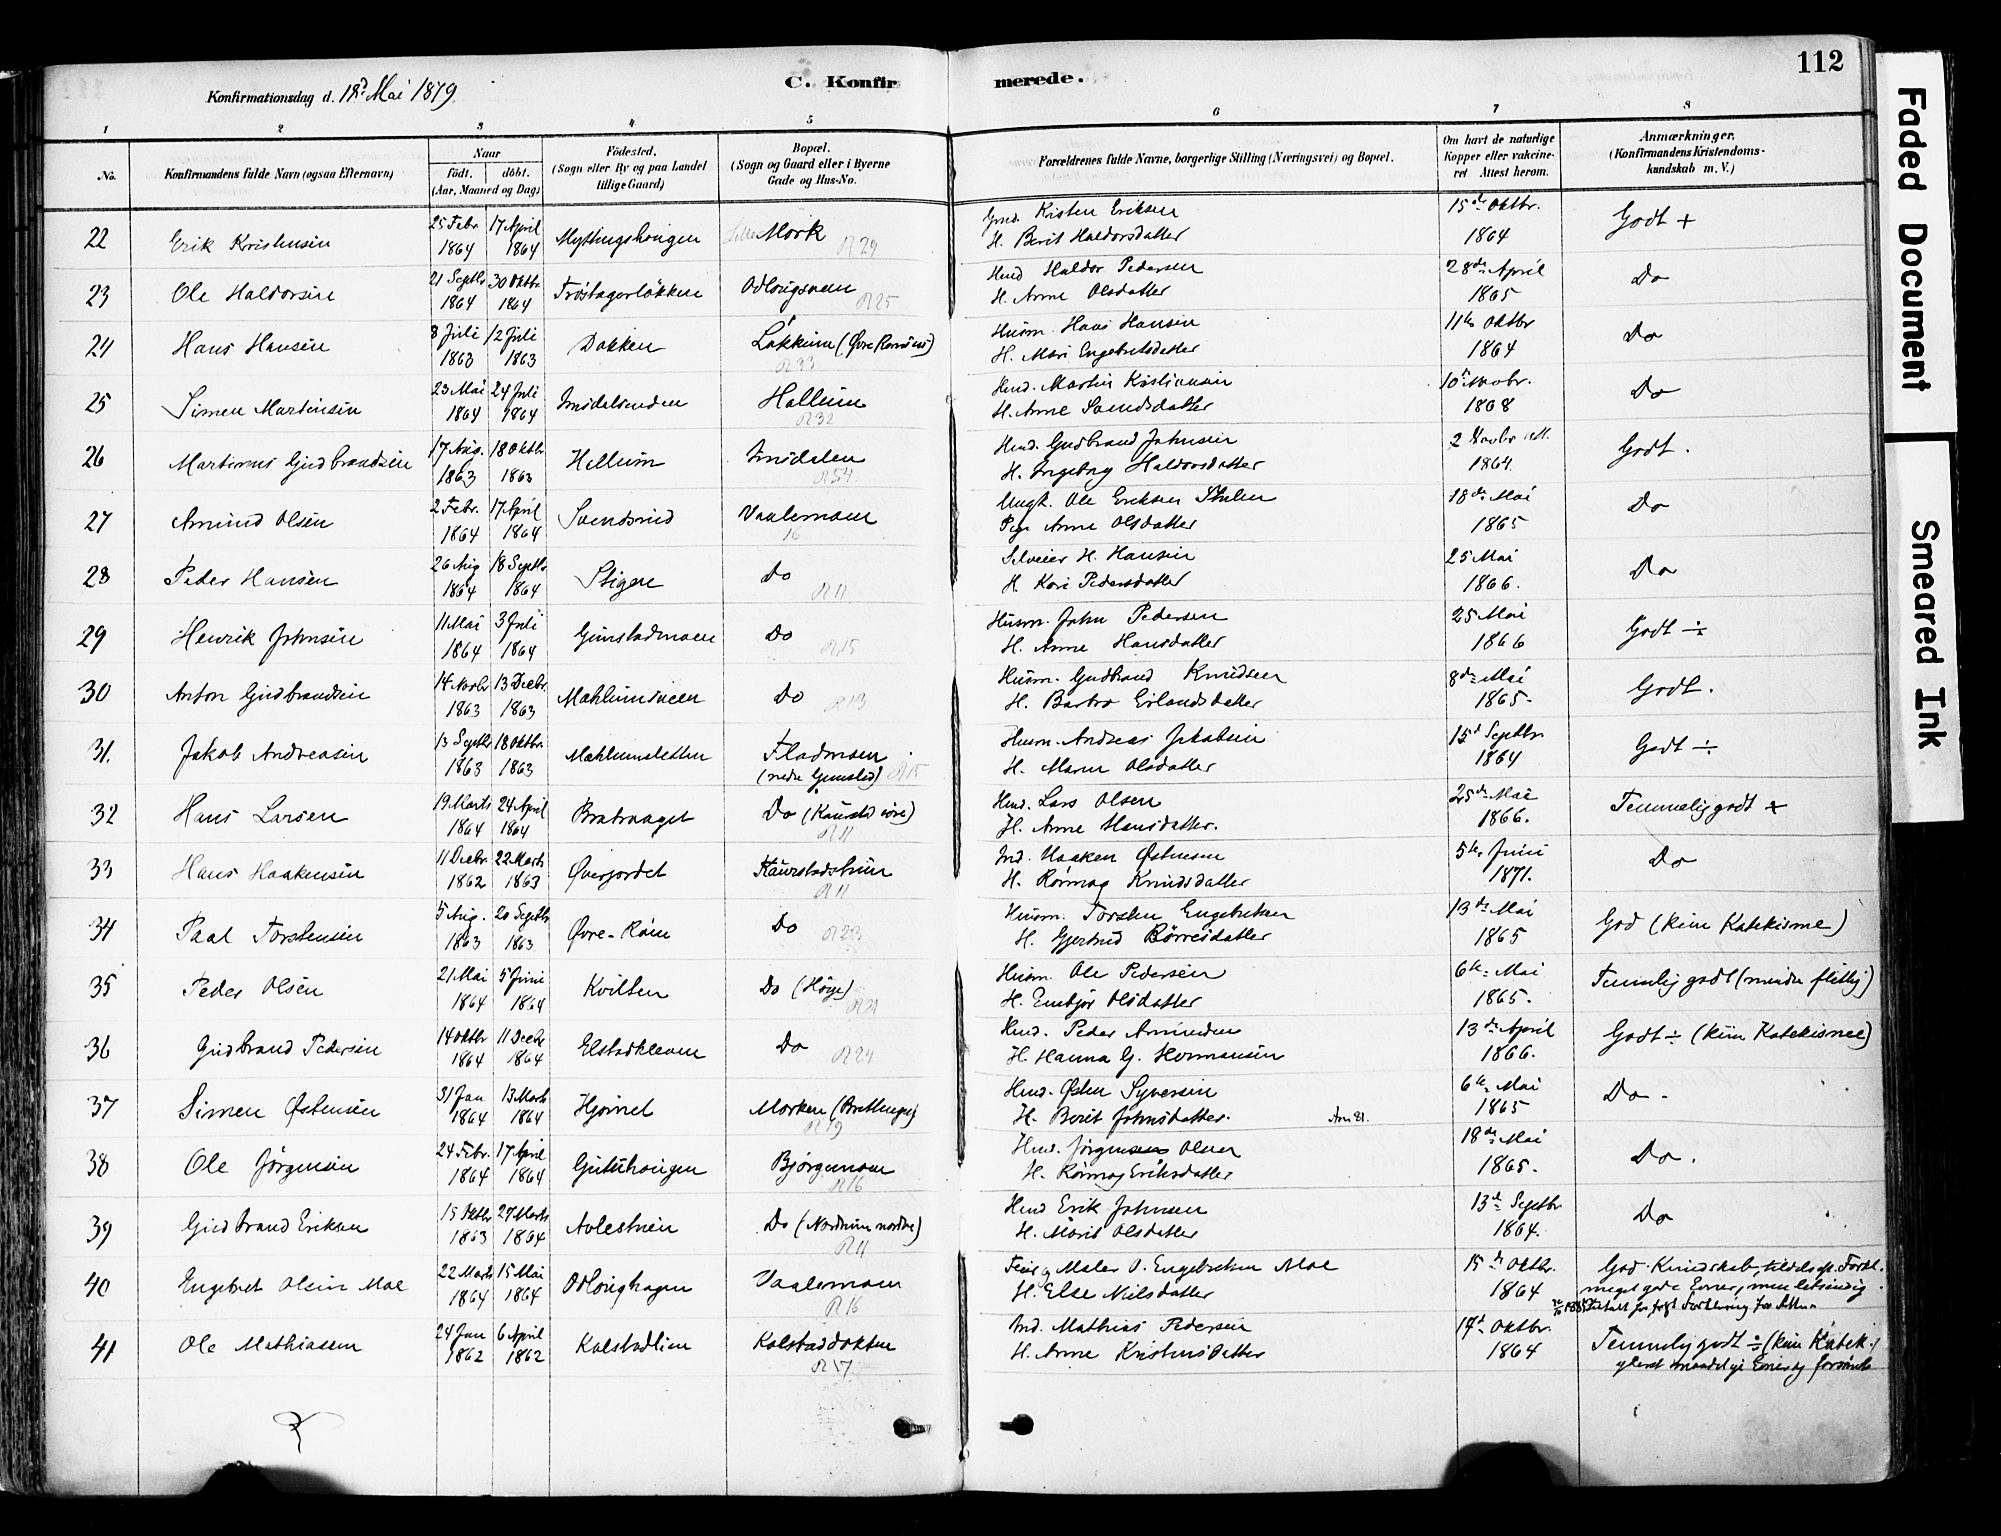 112
Konfirmationsdag d. 18de Mai 1879.
C. Konfir merede.
1 2 3 4 5 6 7 8
No. Konfirmandens fulde Navn (ogsaa Efternavn) Naar født. døbt. (Aar, Maaned og Dag) Fødested. (Sogn eller By og paa Landet tillige Gaard) Bopæl. (Sogn og Gaard eller i Byerne Gade og Hus-No. Forældrenes fulde Navne, borgerlige Stilling (Næringsvei) og Bopæl. Om havt de naturlige Kopper eller vakcineret. Attest herom. Anmærkninger. (Konfirmandens Kristendomskundskab m. V.)
22 Erik Kristensen 25 Febr. 1864 17 April 1864 Myttingshougen Lille Mork R 29 Grd. Kristen Eriksen H. Berit Haldorsdatter 15de Oktbr. 1864 Godt +
23 Ole Haldorsen 21 Septbr 1864 30 Oktbr 1864 Trøstagerløkken Odlougsveen R 25 Hmd Haldor Pedersen H. Anne Olsdatter 28de April 1865 Do
24 Hans Hansen 3 Juli 1863 12 Juli 1863 Dokken Løkkum (Øvre R R 33 Husm. Hans Hansen H. Mari Engebretsdatter 11te Oktbr 1864 Do
25 Simen Martinsen 23 Mai 1864 24 Juli 1864 Imsdalsenden Hallum R 32 Hmd. Martin Kristiansen H. Anne Svendsdatter 10 Novbr. 1868 Do
26 Martinus Gudbrandsen 17 Aug. 1863 18 Oktbr 1863 Hellum Imsdalen R 54. Hmd. Gudbrand Johnsen H. Ingeborg Haldorsdatter 2 Novbr 1864. Godt.
27 Amund Olsen 2 Febr. 1864 17 April 1864 Svendsrud Vaalemoen 16 Ungk. Ole Eriksen Pige Anne Olsdatter 18de Mai 1865 Do
28 Peder Hansen 26 Aug 1864 18 Septbr 1864 Stigen Do R 11. H. Hansen H. Kari Pedersdatter 25 Mai 1866. Do
29 Henrik Johnsen 11 Mai 1864 3 Juli 1864 Gunstadmoen Do R 15 Husm. John Pedersen H. Anne Hansdatter 25 Mai 1866 Godt ÷
30 Anton Gudbrandsen 14 Novbr 1863 13 Decbr. 1863 Mæhlumsveen Do R 13 Husm. Gudbrand Knudsen H. Barbro Erlandsdatter 8de Mai 1865. Godt.
31. Jakob Andreasen 13 Septbr 1863 18 Oktbr. 1863 Mæhlumsletten Fladmoen (nedre Gunstad) R 15 Husm. Andreas Jakobsen H. Maren Olsdatter 15d Septbr 1864 Godt ÷
32 Hans Larsen 19 Marts 1864 24 April 1864 Bratvaaget Do ( R 11 Hmd. Lars Olsen H. Anne Hansdatter. 25de Mai 1866. Temmelig godt +
33 Hans Haakensen 11 Decbr. 1862 22 Marts 1863 Øverjordet R 11 Ind. Haaken Østensen H. Rønnog Knudsdatter 5te Juni 1871. Do
34 Paal Torstensen 5 Aug. 1863 20 Septbr 1863 Øvre-Røen Do R 23 Husm. Torsten Engebretsen H. Gjertrud Børresdatter 13de Mai 1865 God (kun Katekisme)
35 Peder Olsen 21 Mai 1864 5 Juni 1864 Kvilten Do (Høye) R 21 Husm. Ole Pedersen H. Embjør Olsdatter 6te Mai 1865. Temmelig godt (mindre flittig)
36 Gudbrand Pedersen 14 Oktbr 1864 11 Decbr 1864 Elstadkleven Do R 24 Hmd. Peder Amundsen H. Hanna G. Hermansen 13de April 1866. Godt ÷ (kun Katekismee)
37 Simen Østensen 31 Jan 1864 13 Marts 1864 Hjørnet Morken ( R 19 Hmd. Østen Syversen H. Berit Johnsdatter. Anm 81. 6te Mai 1865 Do -
38 Ole Jørgensen 24 Febr. 1864 17 April 1864 Gutuhougen Bjørgemoen R 16 Hmd. Jørgen Olsen H. Rønnog Eriksdatter 18de Mai 1865. Do.
39 Gudbrand Eriksen 15 Oktbr 1863 27 Marts 1864 Aolestuen Do (Nordrum nordre) R 11 Hmd Erik Johnsen H. Marit Olsdatter 13d Septbr 1864. Do
40 Engebret Olsen Moe 22 Marts 1864 15 Mai 1864 Odloughagen Vaalemoen R 16 og Maler O. Engebretsen Moe H. Else Nilsdatter 15de Oktbr. 1864 God Kundskab, tildels op. Forst. meget gode Evner, men letsindig.
41 Ole Mathiassen 24 Jan 1862 6 April 1862 Kalstadlien Kalstaddokken R 17 Ind. Mathias Pedersen H. Anne Kristensdatter 14d Oktbr. 1864 Temmelig godt ÷ (kun Katek.) yderst maadelige Evner og forsømt
Faded Document
Smeared Ink